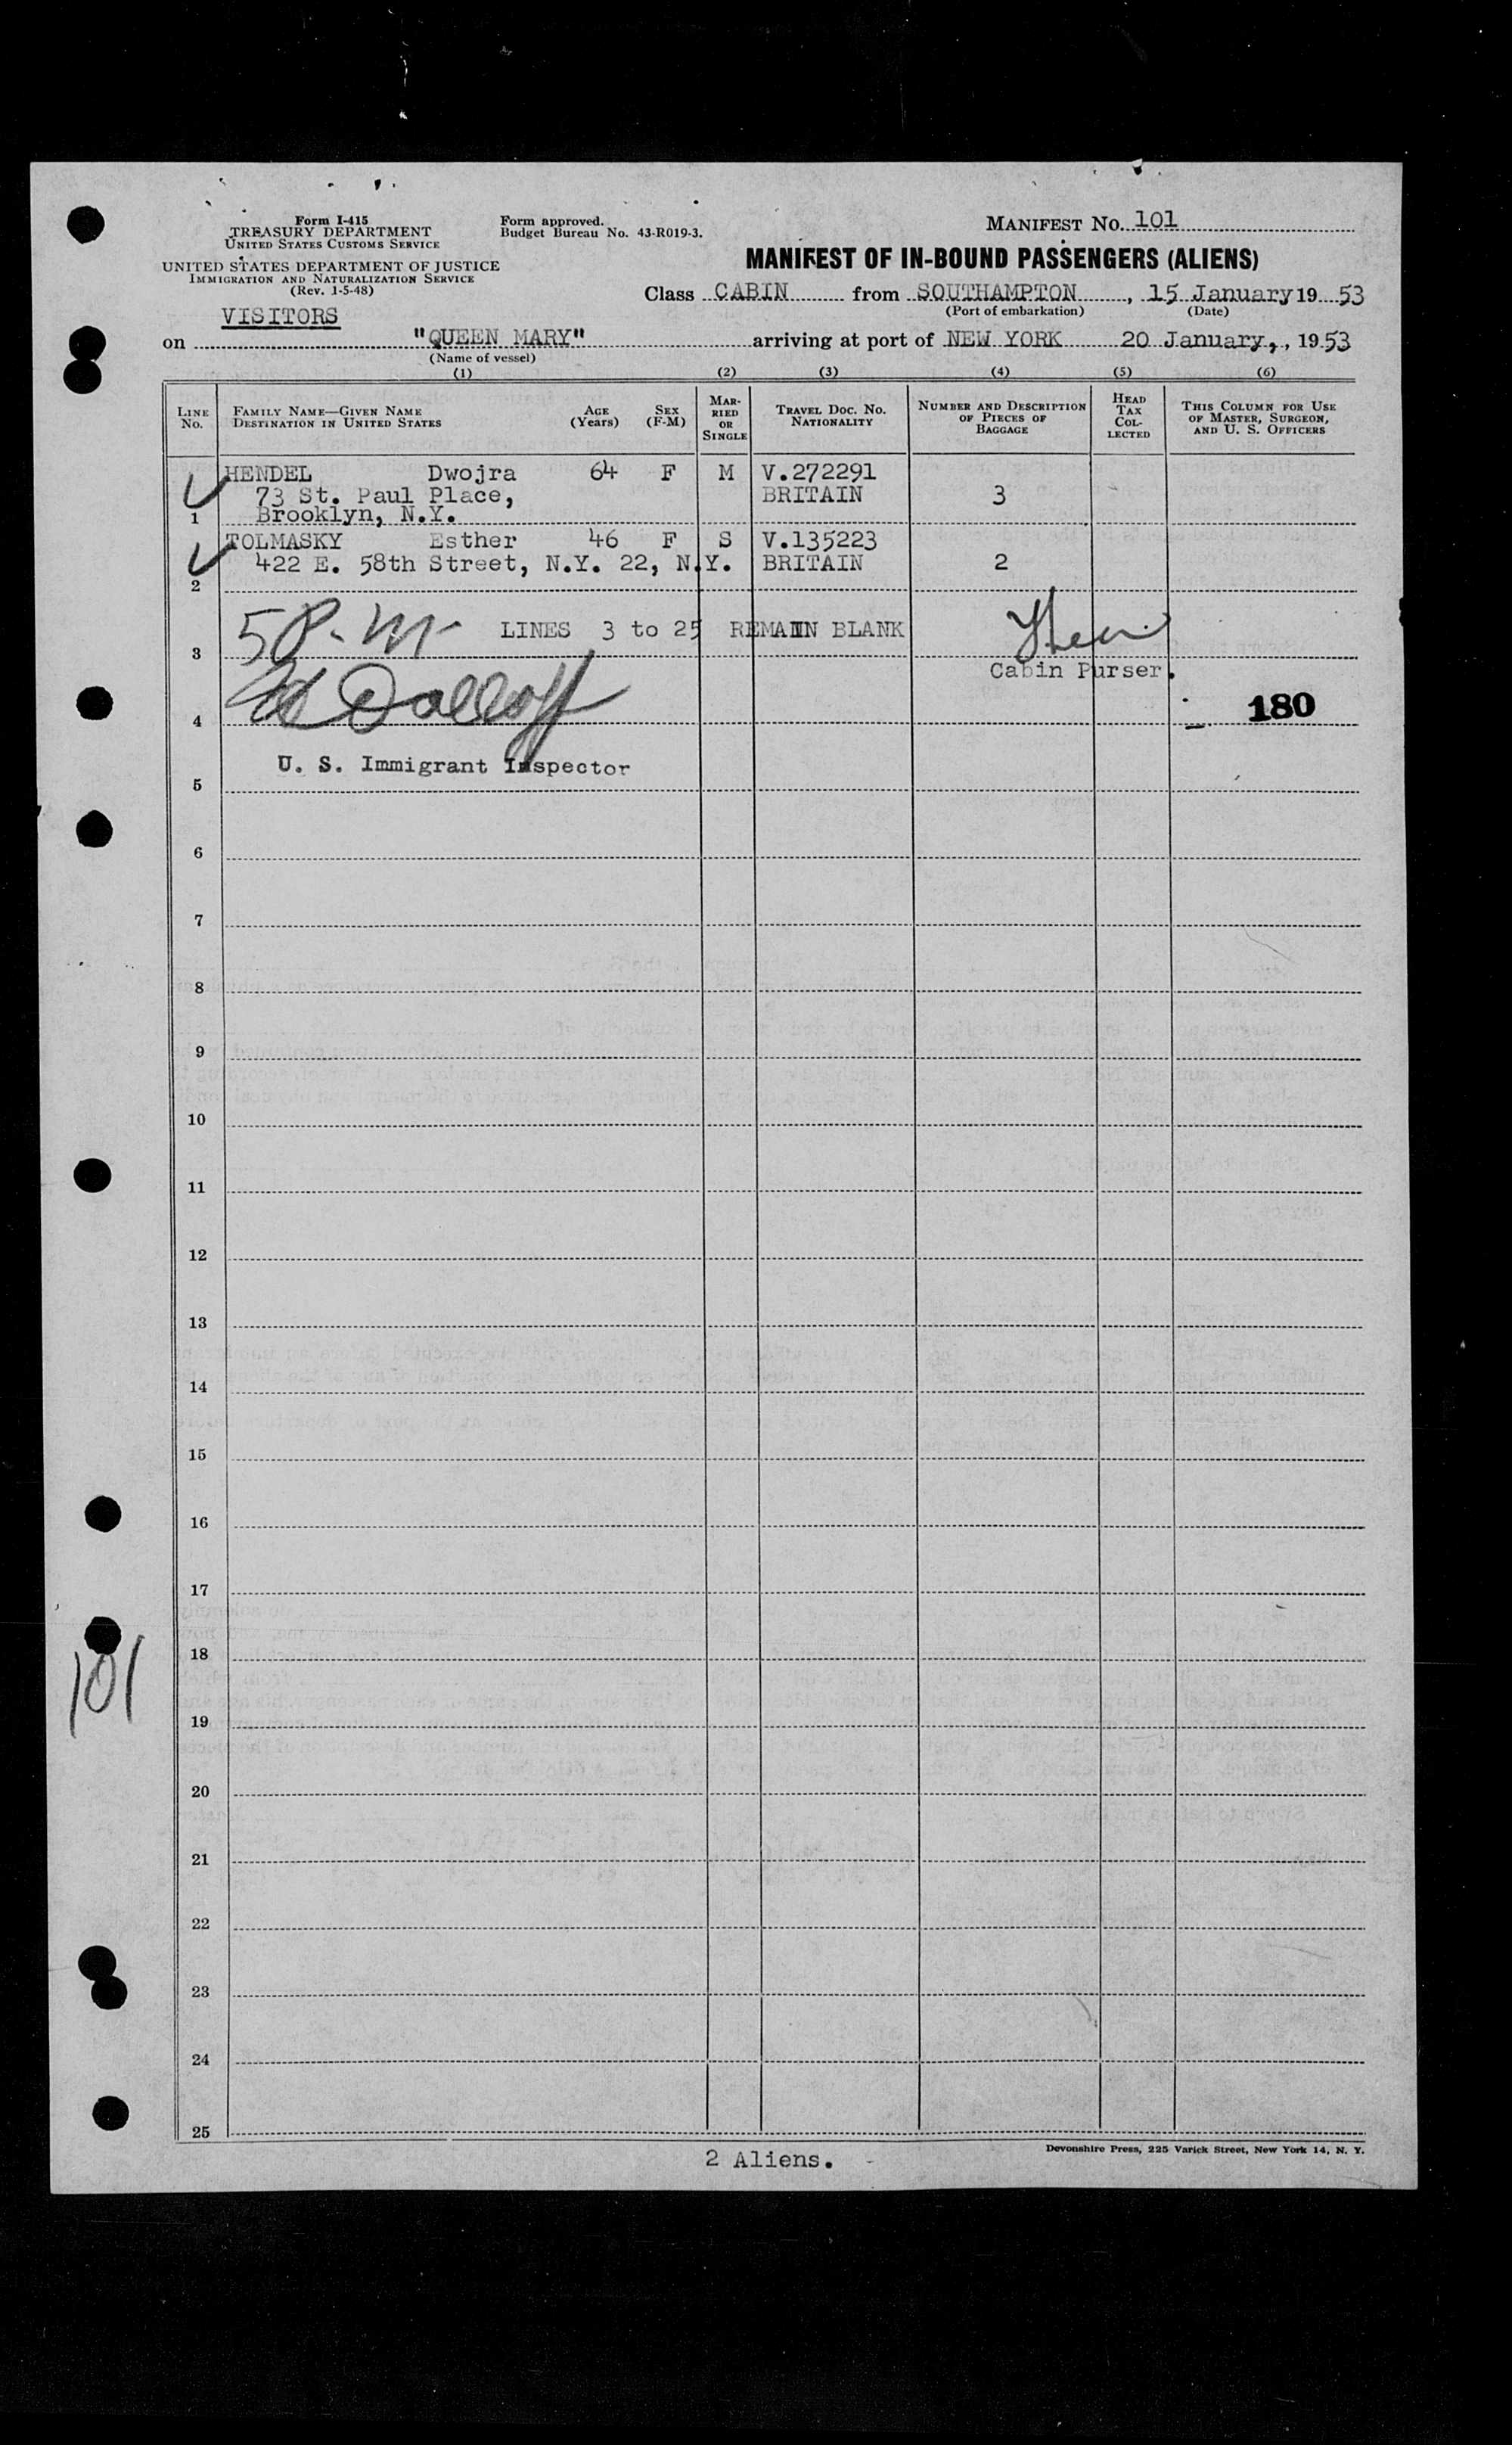 Form I-415
TREASURY DEPARTMENT
UNITED STATES CUSTOMS SERVICE
UNITED STATES DEPARTMENT OF JUSTICE
IMMIGRATION AND NATURALIZATION SERVICE
(Rev. 1-5-48)
Form approved.
Budget Bureau No. 43-R019-3.
MANIFEST No. 101
MANIFEST OF IN-BOUND PASSENGERS (ALIENS)
Class CABIN from SOUTHAMPTON, 15 January 19 53
(Port of embarkation) (Date)
VISITORS
on "QUEEN MARY" arriving at port of NEW YORK 20 January,, 19 53
(Name of vessel)
(1) (2) (3) (4) (5) (6)
LINE No.
FAMILY NAME—GIVEN NAME
DESTINATION IN UNITED STATES
AGE (Years)
SEX (F-M)
MARRIED OR SINGLE
TRAVEL DOC. NO. NATIONALITY
NUMBER AND DESCRIPTION OF PIECES OF BAGGAGE
HEAD TAX COLLECTED
THIS COLUMN FOR USE OF MASTER, SURGEON, AND U. S. OFFICERS
HENDEL Dwojra 64 F M V.272291
73 St. Paul Place, BRITAIN 3
1 Brooklyn, N.Y.
TOLMASKY Esther 46 F S V.135223
422 E. 58th Street, N.Y. 22, N.Y. BRITAIN 2
2
5 P.m
LINES 3 to 25 REMAIN BLANK
3
Cabin Purser.
4
180
U. S. Immigrant Inspector
5
6
7
8
9
10
11
12
13
14
15
16
17
18
101
19
20
21
22
23
24
25
2 Aliens.
Devonshire Press, 225 Varick Street, New York 14, N. Y.